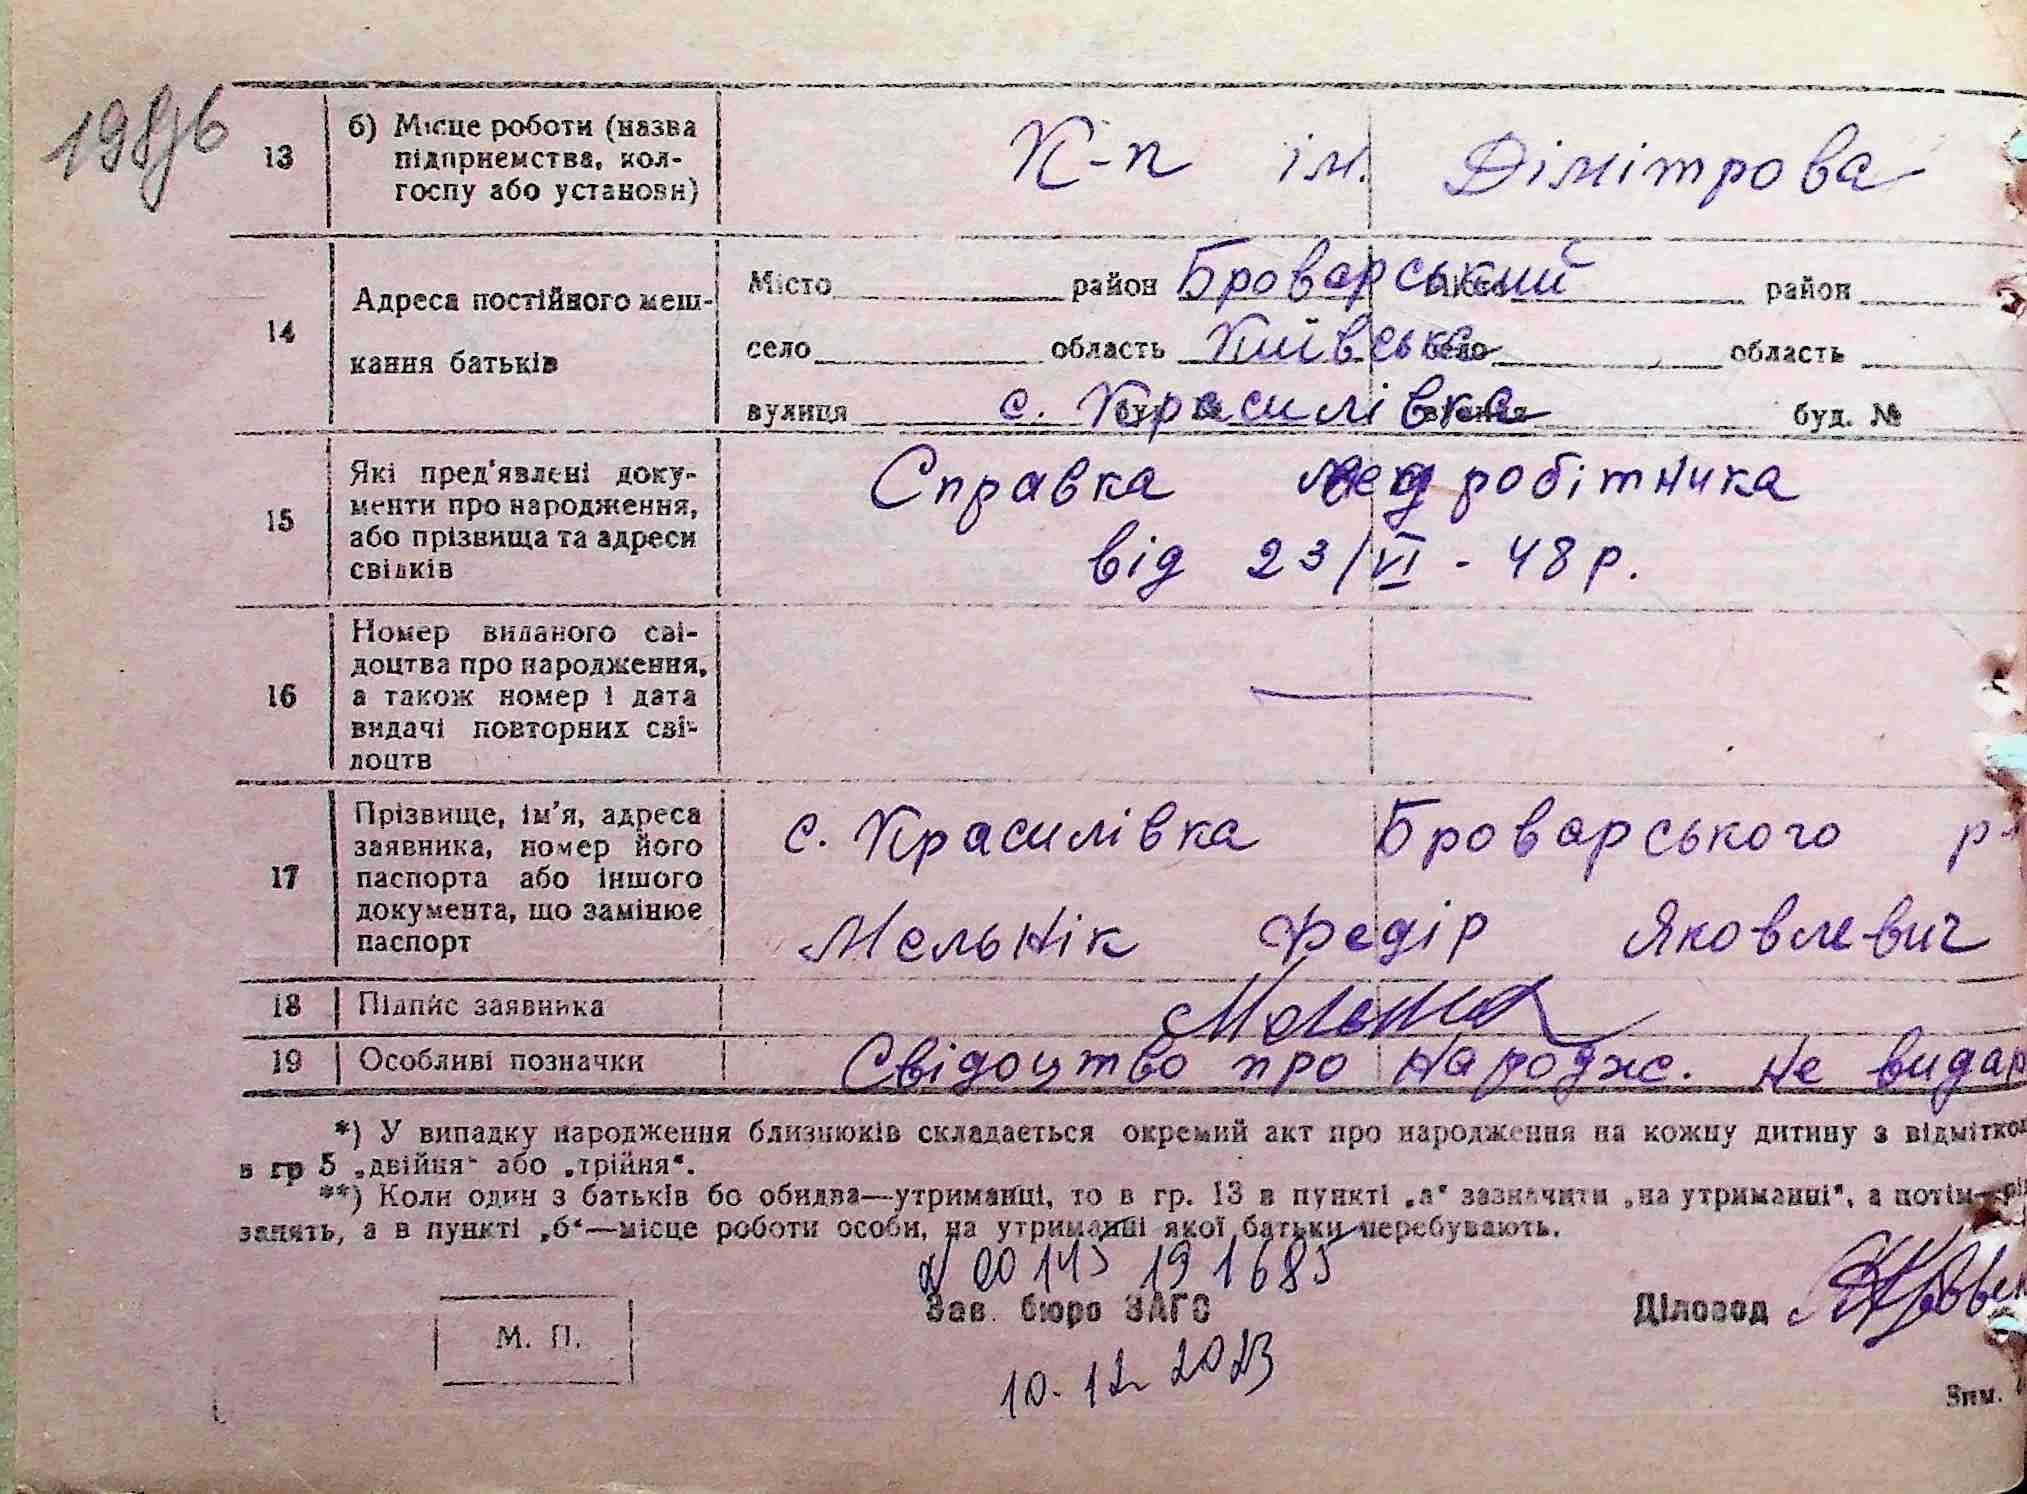 198зв
13 б) Місце роботи (назва підприємства, кол-
госпу або установи) К-п ім. Дімітрова
14 Адреса постійного меш-
кання батьків
Місто район Броварський Місто район
село область Київська село область
вулиця с. Красилівка вулиця буд. №
15 Які пред'явлені доку-
менти про народження,
або прізвища та адреси
свідків
Справка мед робітника
від 23/VI - 48 р.
16 Номер виданого сві-
доцтва про народження,
а також номер і дата
видачі повторних сві-
доцтв
—
17 Прізвище, ім'я, адреса
заявника, номер його
паспорта або іншого
документа, що замінює
паспорт
с. Красилівка Броварського р-
Мельнік Федір Яковлевич
18 Підпис заявника
19 Особливі позначки Свідоцтво про народж. не видар
*) У випадку народження близнюків складається окремий акт про народження на кожну дитину з відміткою
в гр 5 „двійня" або „трійня".
**) Коли один з батьків бо обидва—утриманці, то в гр. 13 в пункті „а" зазначити „на утриманні", а потім—рід
занять, а в пункті „б"—місце роботи особи, на утриманні якої батьки перебувають.
00145 19 1685
Зав. бюро ЗАГС Діловод
М. П.
10.12 2023
Зам.